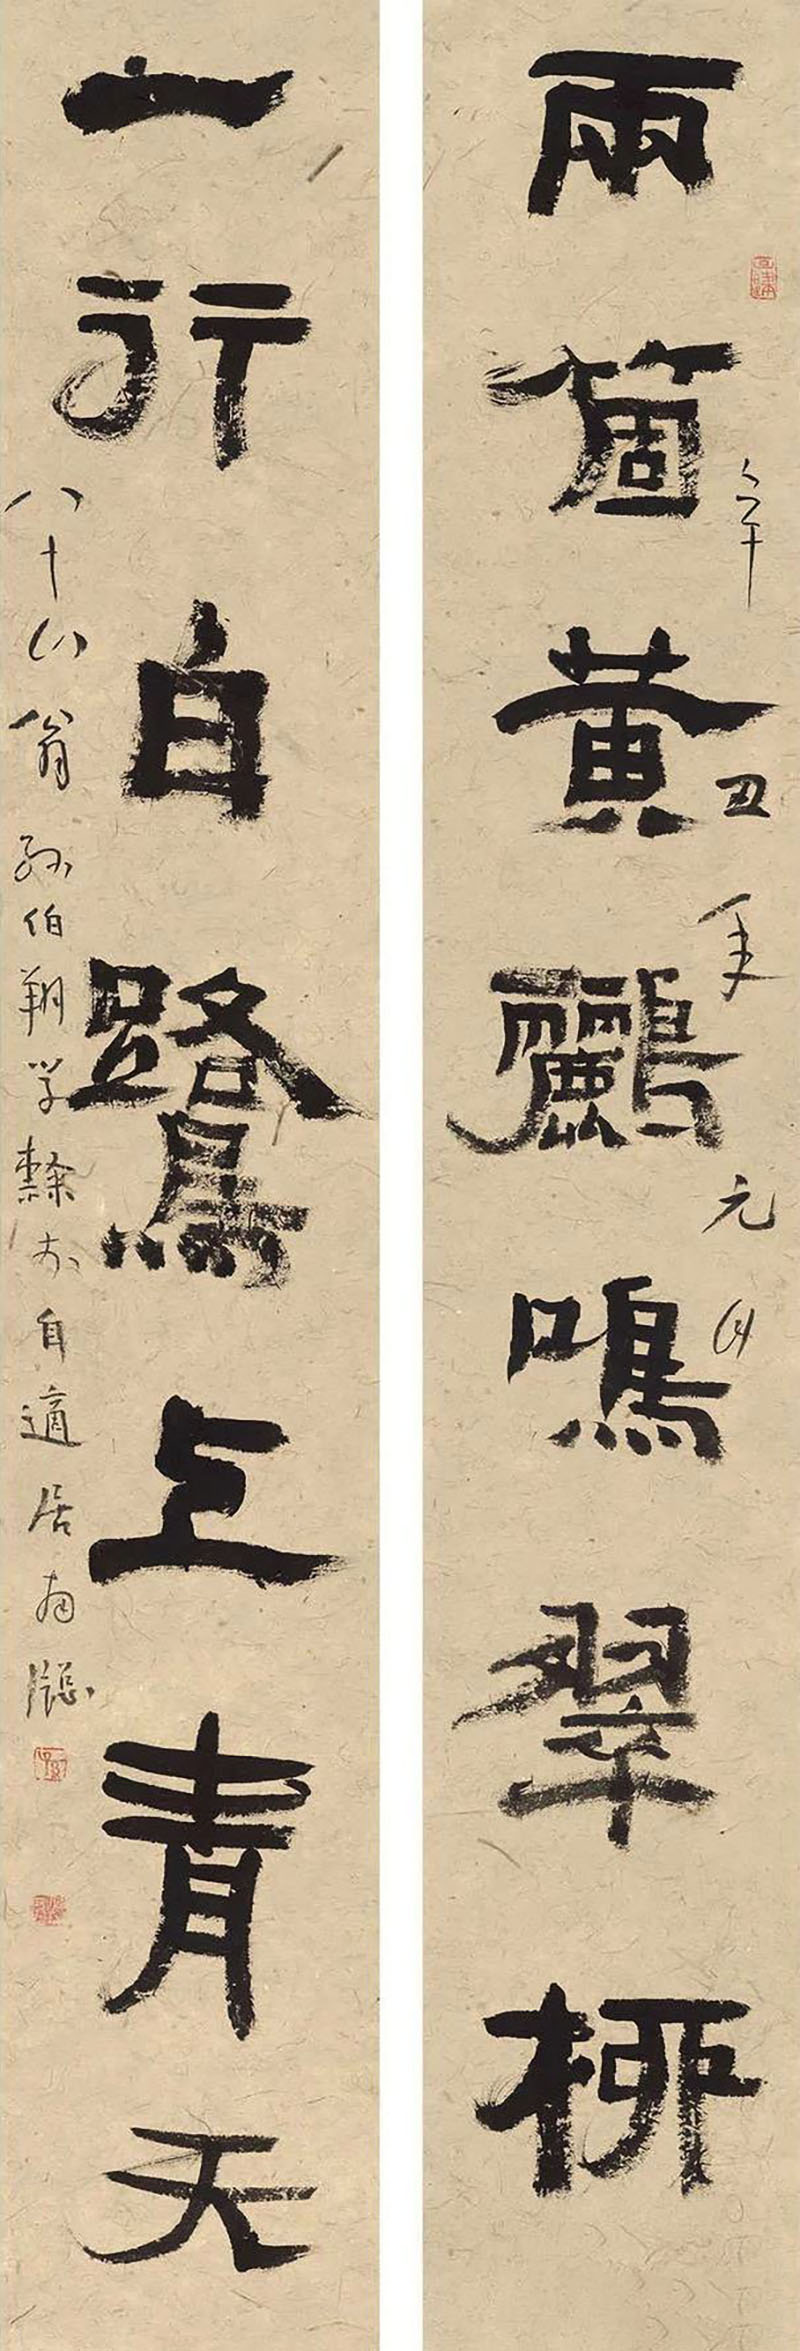 兩箇黃鸝鳴翠柳
辛丑年元月
一行白鷺上青天
八十八翁孫伯翔學隸於自適居南窗